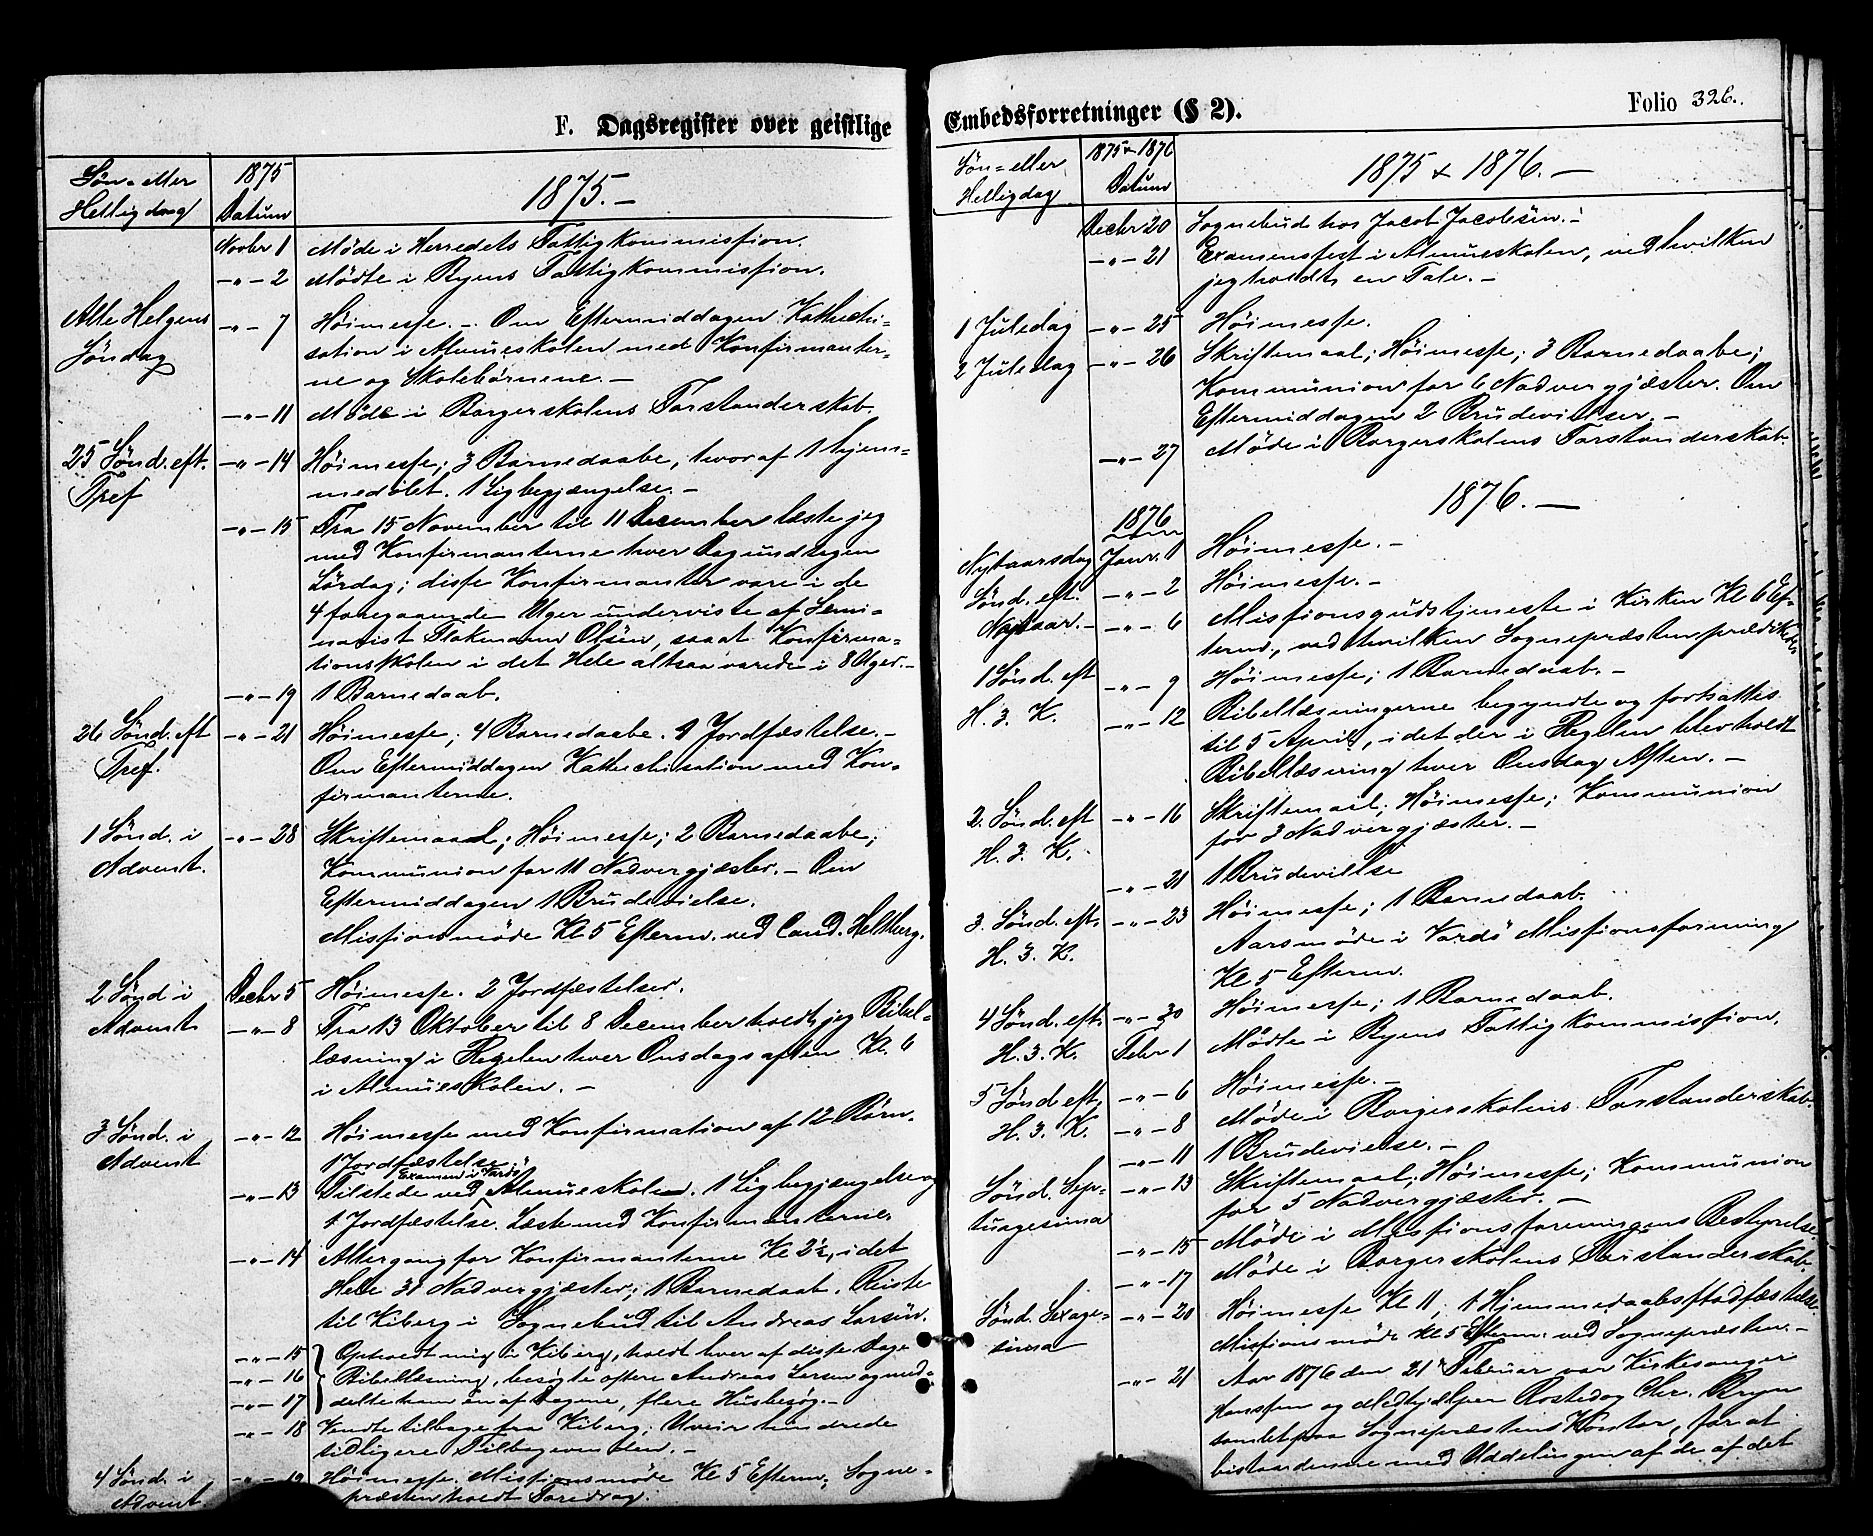 F. Dagsregister over geistlige
Søn- eller Helligdag
1875 Datum
1875.-
Novbr 1 Møde i Herredets Fattigkommission.
-"- 2 Mødte i Byens Fattigkommission.
Alle Helgens -"- 7 Høimesse. - Om Eftermiddagen Kathechi-
Søndag sation i Almueskolen med Konfirmanter-
ne og Skolebørnene. -
-"- 11 Møde i Borgerskolens Forstanderskab.
25 Sønd. eft. -"- 14 Høimesse; 3 Barnedaabe, hvoraf 1 hjem-
Tref medøbt. 1 Ligbegjængelse. -
-"- 15 Fra 15 November til 11 December læste jeg
med Konfirmanterne hver Dag undtagen
Lørdag; disse Konfirmanter vare i de
4 foregaaende Uger underviste af Semi-
narist Olsen, saaat Konfirma-
tionsskolen i det Hele altsaa varede i 8 Uger. -
-"- 19 1 Barnedaab.
26 Sønd. eft -"- 21 Høimesse; 4 Barnedaabe. 1 Jordfæstelse. -
Tref. Om Eftermiddagen Kathechisation med Kon-
firmanterne.
1 Sønd. i -"- 28 Skriftemaal; Høimesse; 2 Barnedaabe;
Advent. Kommunion for 11 Nadvergjæster. - Om
Eftermiddagen 1 Brudevielse.
Missionsmøde Kl 5 Efterm. ved Cand. Heltberg.
2 Sønd i Decbr 5 Høimesse. 2 Jordfæstelser.
Advent -"- 8 Fra 13 Oktober til 8 December holdt jeg Bibel-
læsning i Regelen hver Onsdagsaften Kl. 6
i Almueskolen. -
3 Sønd. i -"- 12 Høimesse med Konfirmation af 12 Børn.
Advent 1 Jordfæstelse
Examen i Vardø
-"- 13 Tilstede ved Almueskolen. 1 Ligbegjængelse og
1 Jordfæstelse. Læste med Konfirmanterne.
-"- 14 Altergang for Konfirmanterne Kl 2½, i det
Hele 31 Nadvergjæster; 1 Barnedaab. Reiste
til Kiberg i Sognebud til Andreas Larsen.
-"- 15 Opholdt mig i Kiberg, holdt hver af disse Dage
-"- 16 Bibellæsning, besøgte oftere Andreas Larsen og med-
-"- 17 delte ham en af Dagene, flere Husbesøg. -
-"- 18 Vendte tilbage fra Kiberg; Uveir hindrede
tidligere Tilbagevenden. -
4 Sønd. i -"- 19 Høimesse. Missionsmøde Kl 5 Efterm, Sogne-
Advent præsten holdt Foredrag.
Embedsforretninger (§ 2).
Folio 326.
Søn- eller Helligdag
1875 & 1876 Datum
1875 & 1876. -
Decbr 20 Sognebud hos Jacob Jacobsen. -
-"- 21 Examensfest i Almueskolen, ved hvilken
jeg holdt en Tale. -
1 Juledag -"- 25 Høimesse.
2 Juledag -"- 26 Skriftemaal; Høimesse; 3 Barnedaabe;
Kommunion for 6 Nadvergjæster. Om
Eftermiddagen 2 Brudevielser. -
-"- 27 Møde i Borgerskolens Forstanderskab.
1876. -
1876
Nytaarsdag Janr. 1 Høimesse. -
Sønd. eft. -"- 2 Høimesse. -
Nytaar. - -"- 6 Missionsgudstjeneste i Kirken Kl 6 Ef-
term, ved hvilken Sognepræsten prædikede
1 Sønd. eft -"- 9 Høimesse; 1 Barnedaab. -
H. 3. K. -"- 12 Bibellæsningerne begyndte og fortsattes
til 5 April, idet der i Regelen blev holdt
Bibellæsning hver Onsdag Aften. -
2. Sønd. eft -"- 16 Skriftemaal; Høimesse; Kommunion
H. 3. K. for 3 Nadvergjæster. -
-"- 21 1 Brudevillse
3. Sønd. eft. -"- 23 Høimesse; 1 Barnedaab.
H. 3. K. Aarsmøde i Vardø Missionsforening
Kl 5 Efterm.
4 Sønd. eft. -"- 30 Høimesse; 1 Barnedaab.
H. 3. K. Febr 1 Mødte i Byens Fattigkommission.
5 Sønd eft. -"- 6 Høimesse. -
H. 3. K. -"- 8 Møde i Borgerskolens Forstanderskab.
-"- 11 1 Brudevielse. -
Sønd. Sep- -"- 13 Skriftemaal; Høimesse; Kommunion
tuagesima for 5 Nadvergjæster. -
-"- 15 Møde i Missionsforeningens Bestyrelse
-"- 17 Møde i Borgerskolens Forstanderskab.
Sønd. Sexage- -"- 20 Høimesse Kl 11; 1 Hjemmedaabsstadfæstelse
sima Missionsmøde Kl 5 Efterm. ved Sognepræsten. -
-"- 21 Aar 1876 den 21 Februar var Kirkesanger
Hanssen og Medhjælper Rostedog Chr. Bryn
samlet paa Sognepræstens Kontor, for at
bistaa denne med Uddelingen af de af det